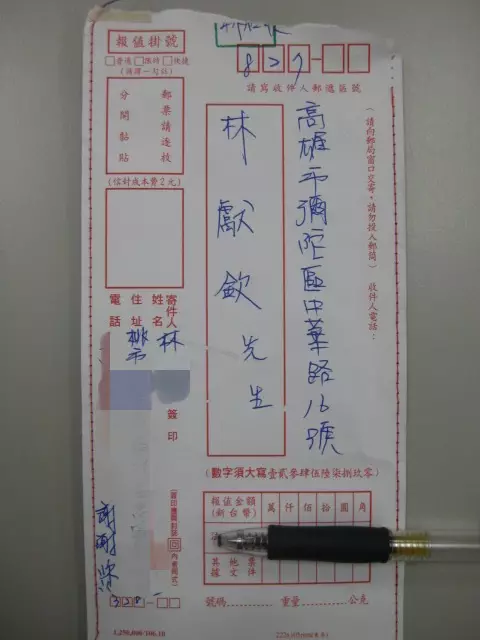 報值掛號
□普通□限時□快捷
(請擇一勾註)
郵票請逐枚
分開黏貼
(信封成本費2元)
827
請寫收件人郵遞區號
(請向郵局窗口交寄,請勿投入郵筒) 收件人電話:
高雄市彌陀區中華路16號
林獻欽先生
寄件人
姓名
住址
電話
林
桃
市
簽印
謝謝您
320
(數字須大寫壹貳參肆伍陸柒捌玖零)
報值金額
(新台幣)
萬仟佰拾圓角
其他票
據文件
號碼 重量 公克